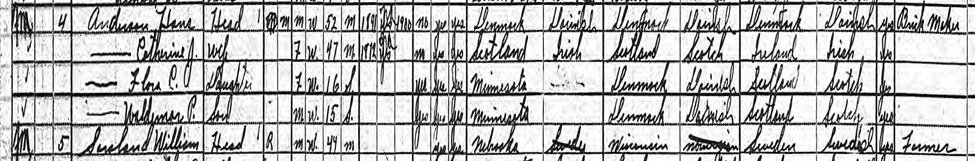 4 Anderson Hans Head M W 52 M 1891 1900 no yes yes Denmark Danish Denmark Danish Denmark Danish yes Brick Maker
— Catherine J. Wife F W 47 M 1872 yes yes Scotland Irish Scotland Scotch Ireland Irish yes
— Flora C. Daughter F W 16 S yes yes yes Minnesota Denmark Danish Scotland Scotch yes
— Waldemar P. Son M W 15 S yes yes yes Minnesota Denmark Danish Scotland Scotch yes
5 William Head R M W 44 M yes yes Wisconsin Norwegian Sweden Swedish yes Farmer